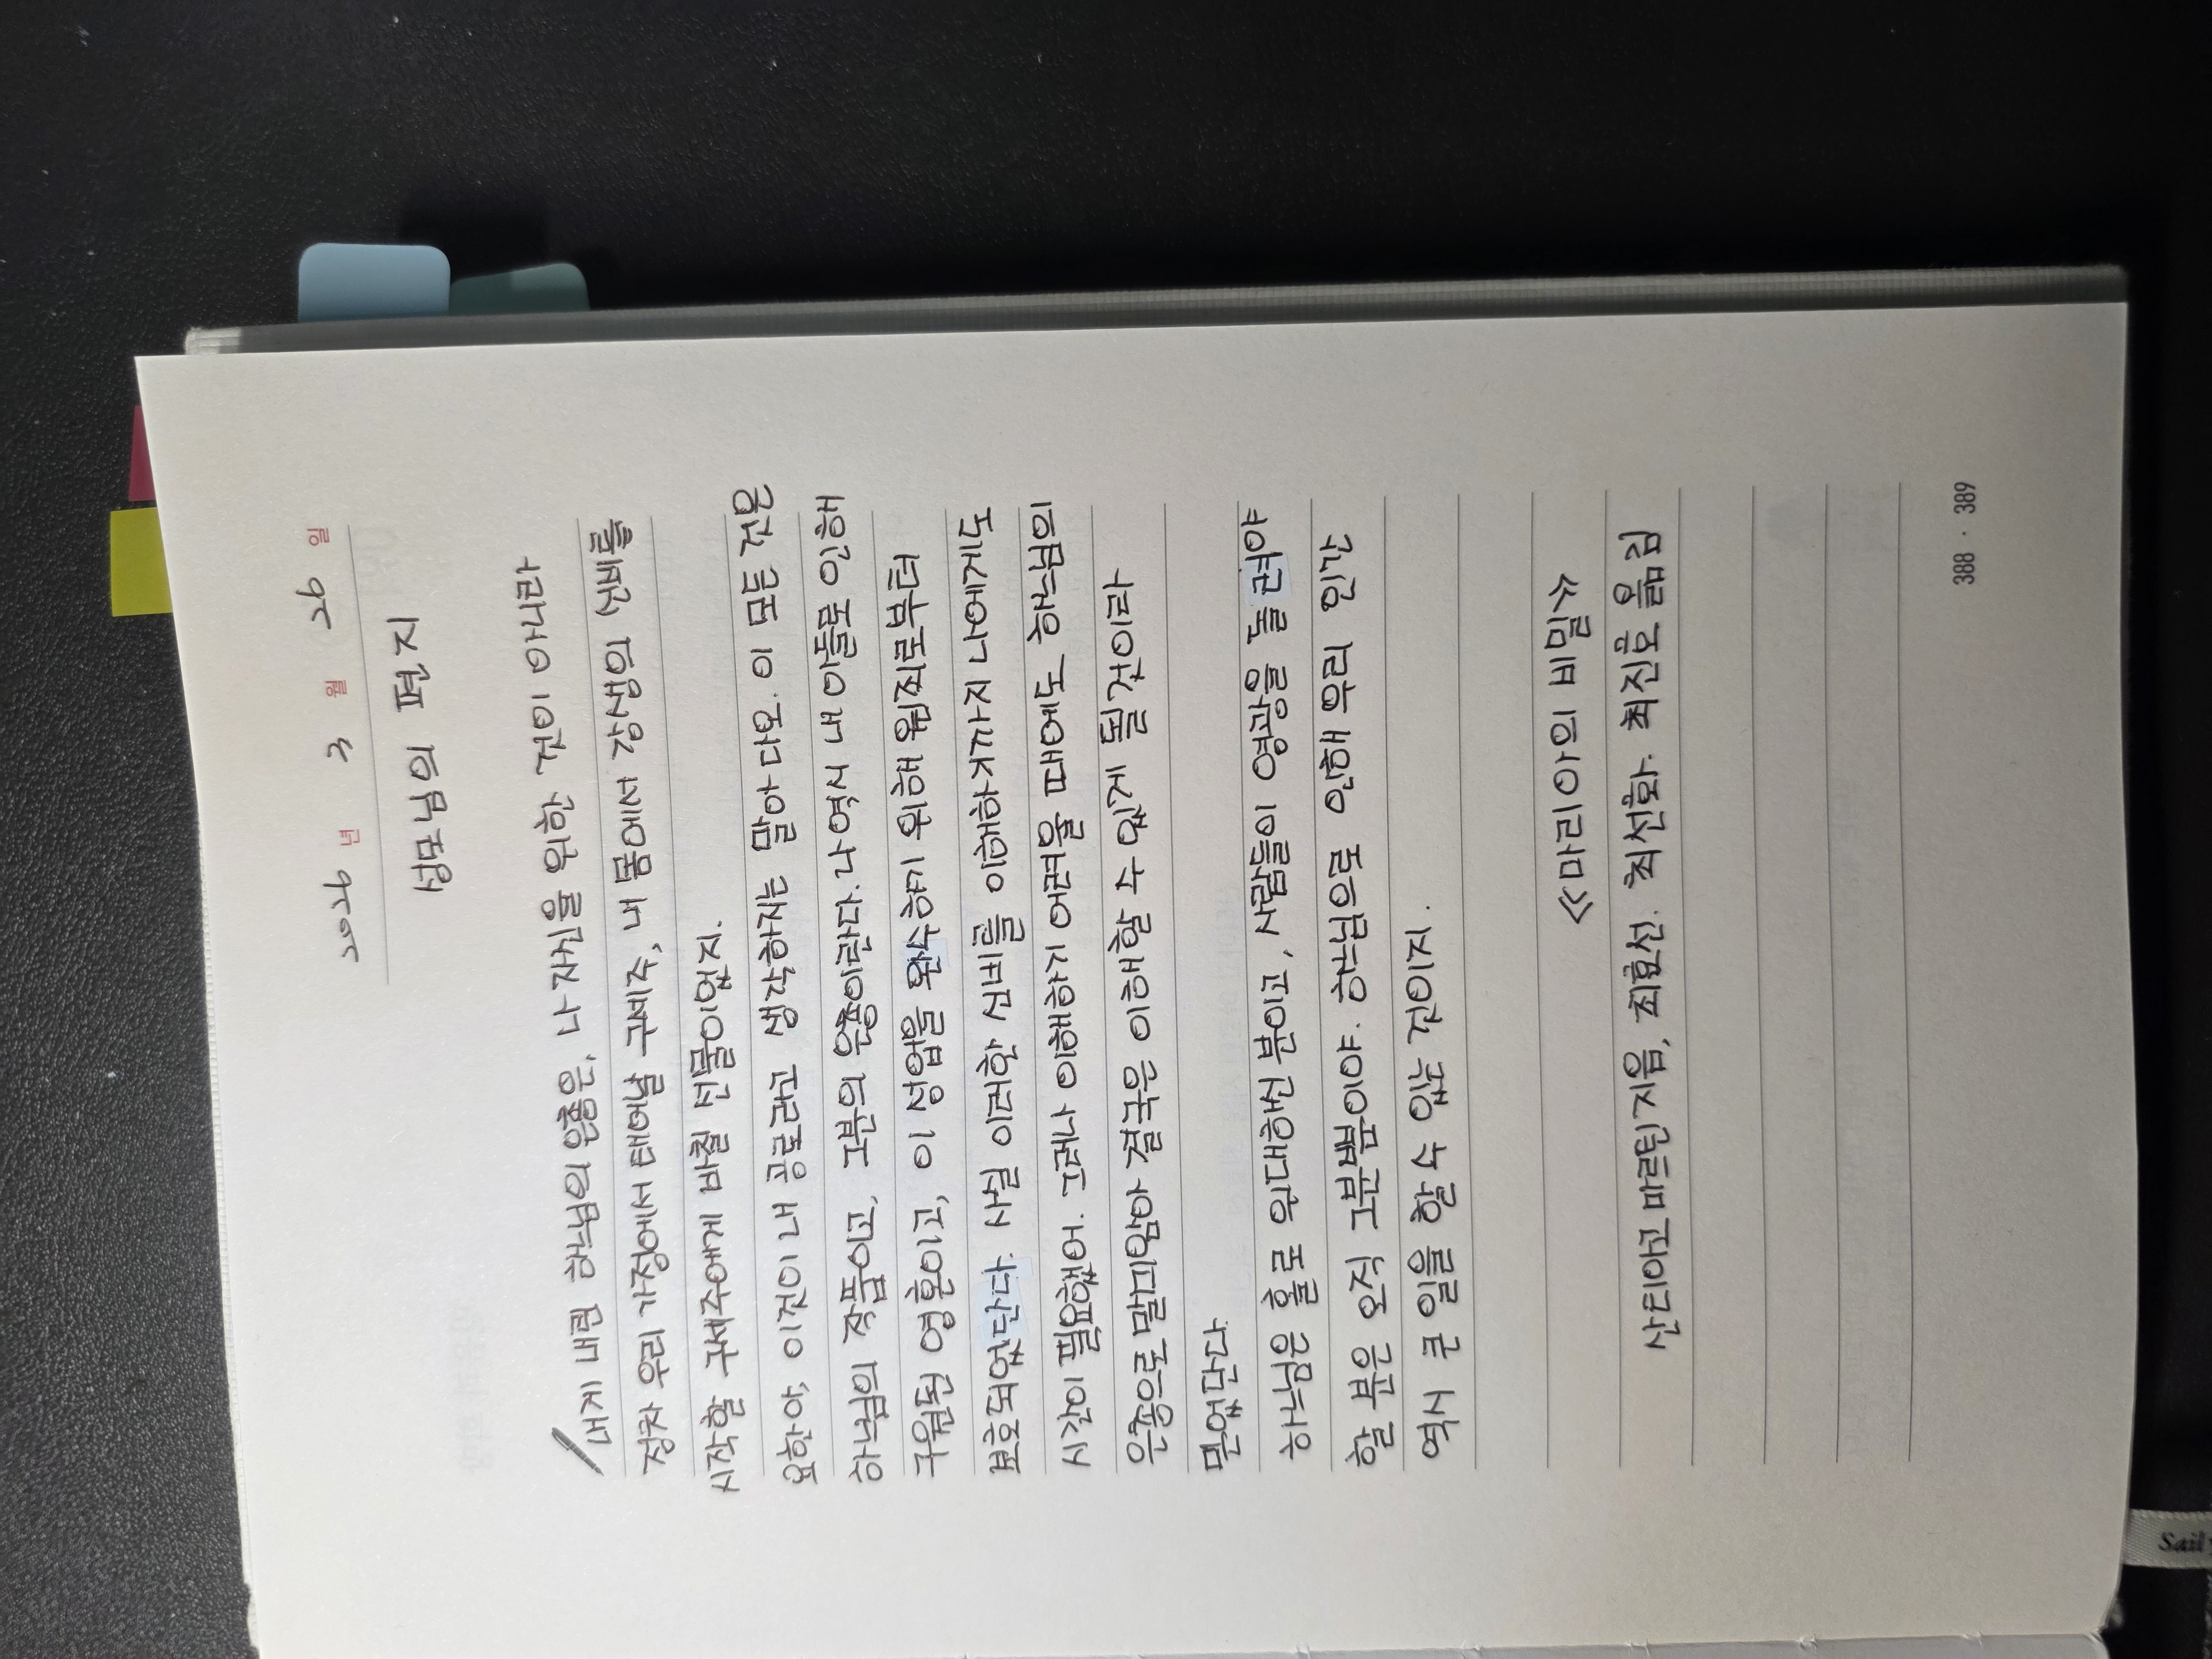 2026 년 3 월 26 일
성모님의 편지
내게 내린 하느님의 은총은, 나 자신을 위한 것이 아니라
장차 우리 가정에서 태어날 구세주, 내 몸에서 강생의 신비를
시작할 구세주에게 바칠 선물이었지.
요한아, 이것이 내 공로라고 생각하지는 말아 다오. 이 모든 것은
하느님의 작품이고, 그분의 은총이란다. 나 역시 내 아들로 인해
구원된 영혼이고, 이 성업을 완수하기 위해 원죄로부터
보호되었단다. 사실 이러한 신비를 이해하기까지 나에게도
시간이 필요했어. 그러나 이해하기 어려울 때에도 하느님의
은총으로 말미암아 결국은 이해할 수 있게 될 것이라
믿었단다.
하느님은 홀로 위대하신 분이고, 사람들이 영광을 돌려야
할 분은 오직 그분뿐이야. 하느님으로 인해 우리 인간
역시 큰 일을 할 수 있는 것이지.
《마리아의 비밀》
산티아고 마르틴 지음, 최효선. 최선화. 최진호 옮김
388 · 389
Sail